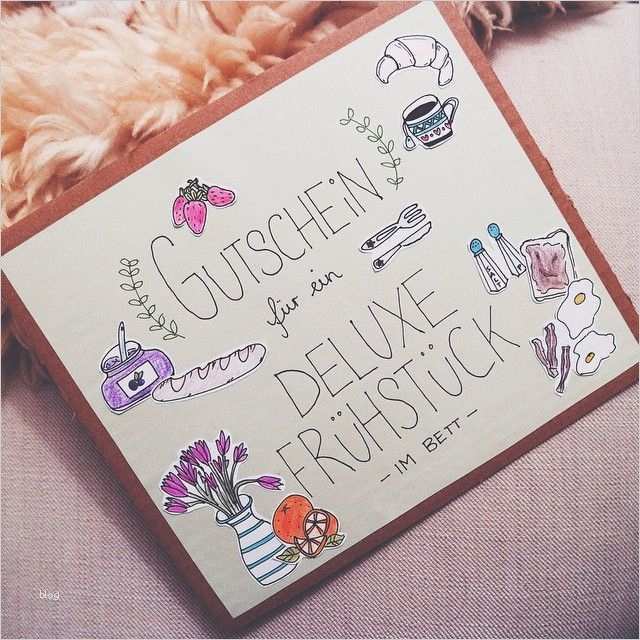 GUTSCHEiN
für ein
DELUXE
FRÜHSTÜCK
- IM BETT -
SALZ
blog